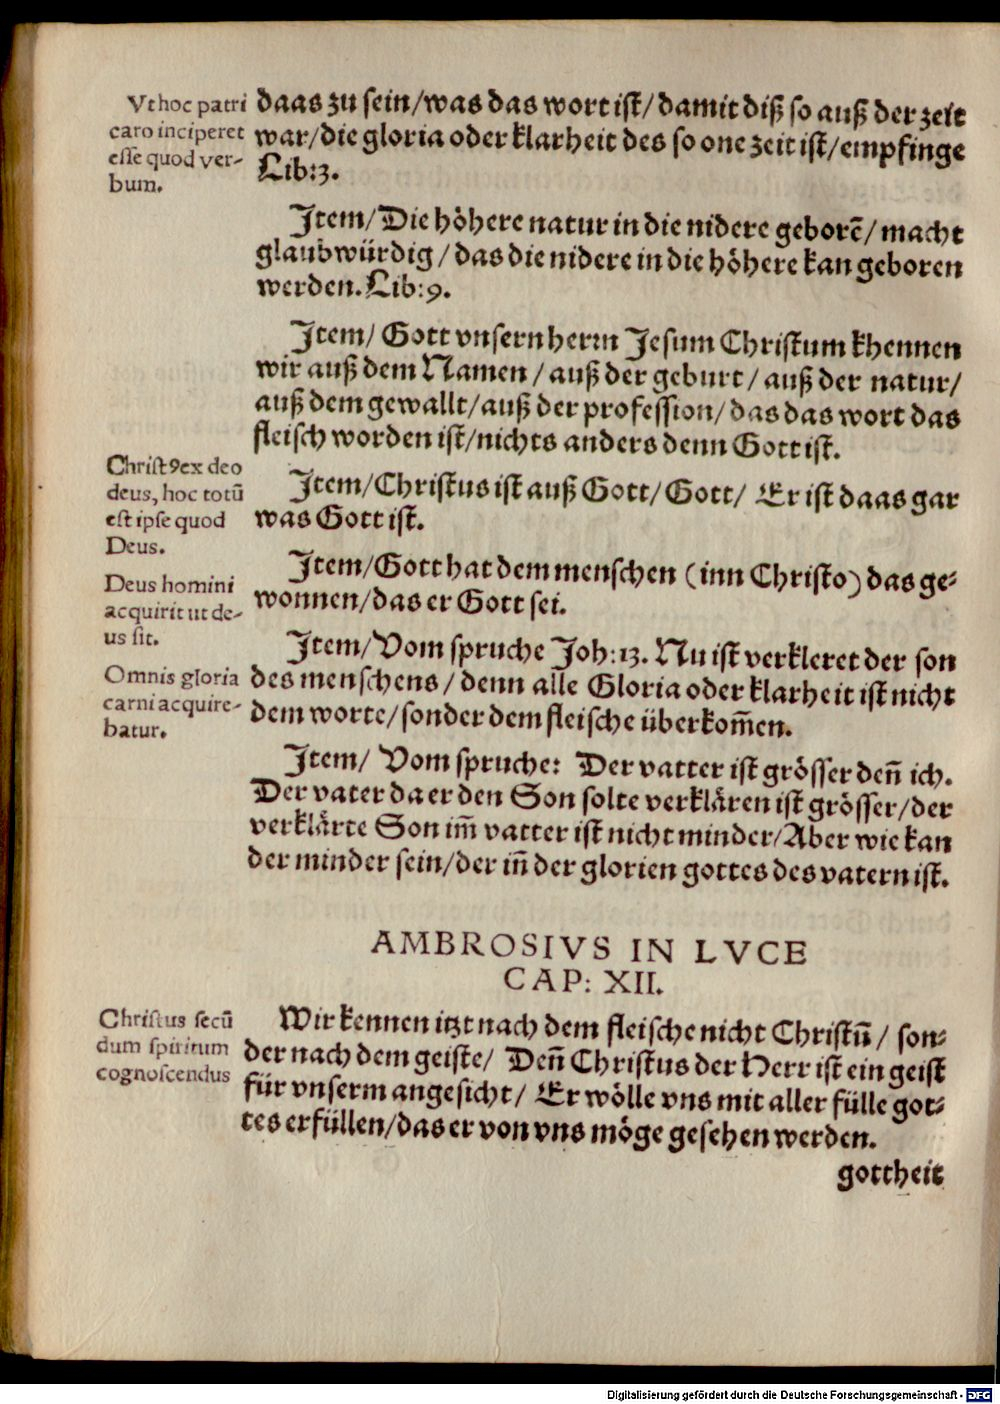 Vt hoc patri
caro inciperet
esse quod ver-
bum.
daas zu sein/was das wort ist/damit diß so auß der zeit
war/die gloria oder klarheit des so one zeit ist/empfinge
Lib:3.
Item/Die höhere natur in die nidere geborē/macht
glaubwürdig/das die nidere in die höhere kan geboren
werden. Lib:9.
Item/ Gott vnsern herrn Jesum Christum khennen
wir auß dem Namen/auß der geburt/auß der natur/
auß dem gewallt/auß der profession/das das wort das
fleisch worden ist/nichts anders denn Gott ist.
Christꝰ ex deo
deus, hoc totū
est ipse quod
Deus.
Item/Christus ist auß Gott/Gott/ Er ist daas gar
was Gott ist.
Deus homini
acquirit ut de-
us sit.
Item/Gott hat dem menschen (inn Christo) das ge-
wonnen/das er Gott sei.
Omnis gloria
carni acquire-
batur.
Item/Vom spruche Joh:13. Nu ist verkleret der son
des menschens/denn alle Gloria oder klarheit ist nicht
dem worte/sonder dem fleische überkom̄en.
Item/ Vom spruche: Der vatter ist grösser den̄ ich.
Der vater da er den Son solte verklären ist grösser/der
verklärte Son im̄ vatter ist nicht minder/Aber wie kan
der minder sein/der in̄ der glorien gottes des vatern ist.
AMBROSIVS IN LVCE
CAP: XII.
Christus secū
dum spiritum
cognoscendus
Wir kennen itzt nach dem fleische nicht Christū/son-
der nach dem geiste/ Den̄ Christus der Herr ist ein geist
für vnserm angesicht/ Er wölle vns mit aller fülle got-
tes erfüllen/das er von vns möge gesehen werden.
gottheit
Digitalisierung gefördert durch die Deutsche Forschungsgemeinschaft - DFG